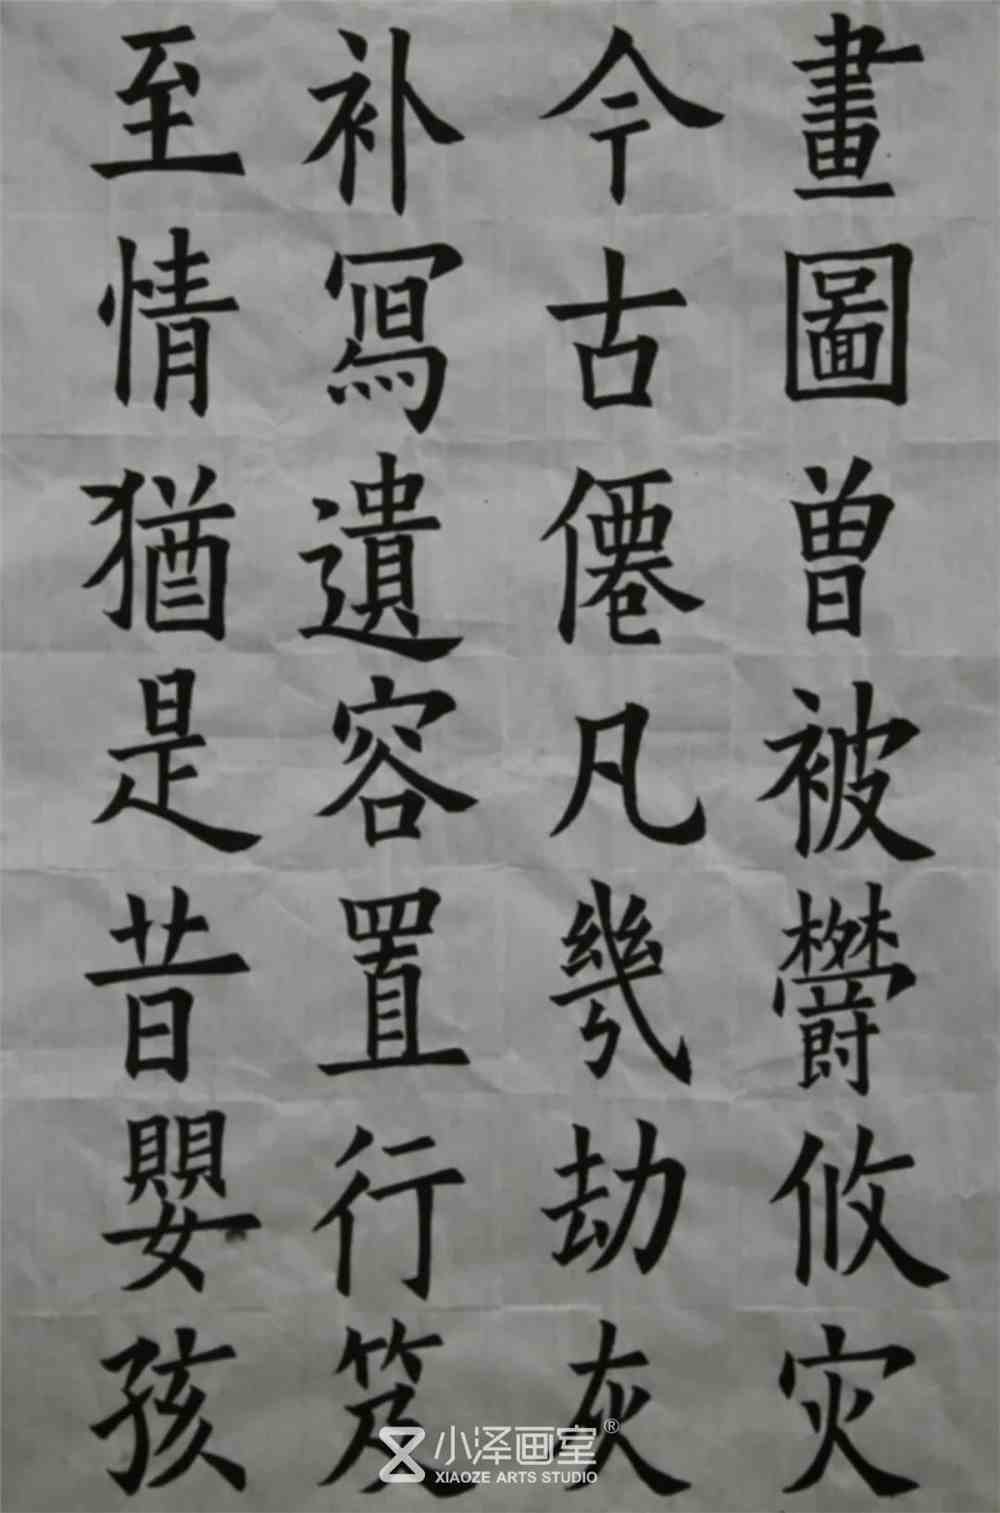 畫圖曾被鬱攸灾
今古僊凡幾劫灰
补寫遺容置行笈
至情猶是昔嬰孩
小泽画室®
XIAOZE ARTS STUDIO